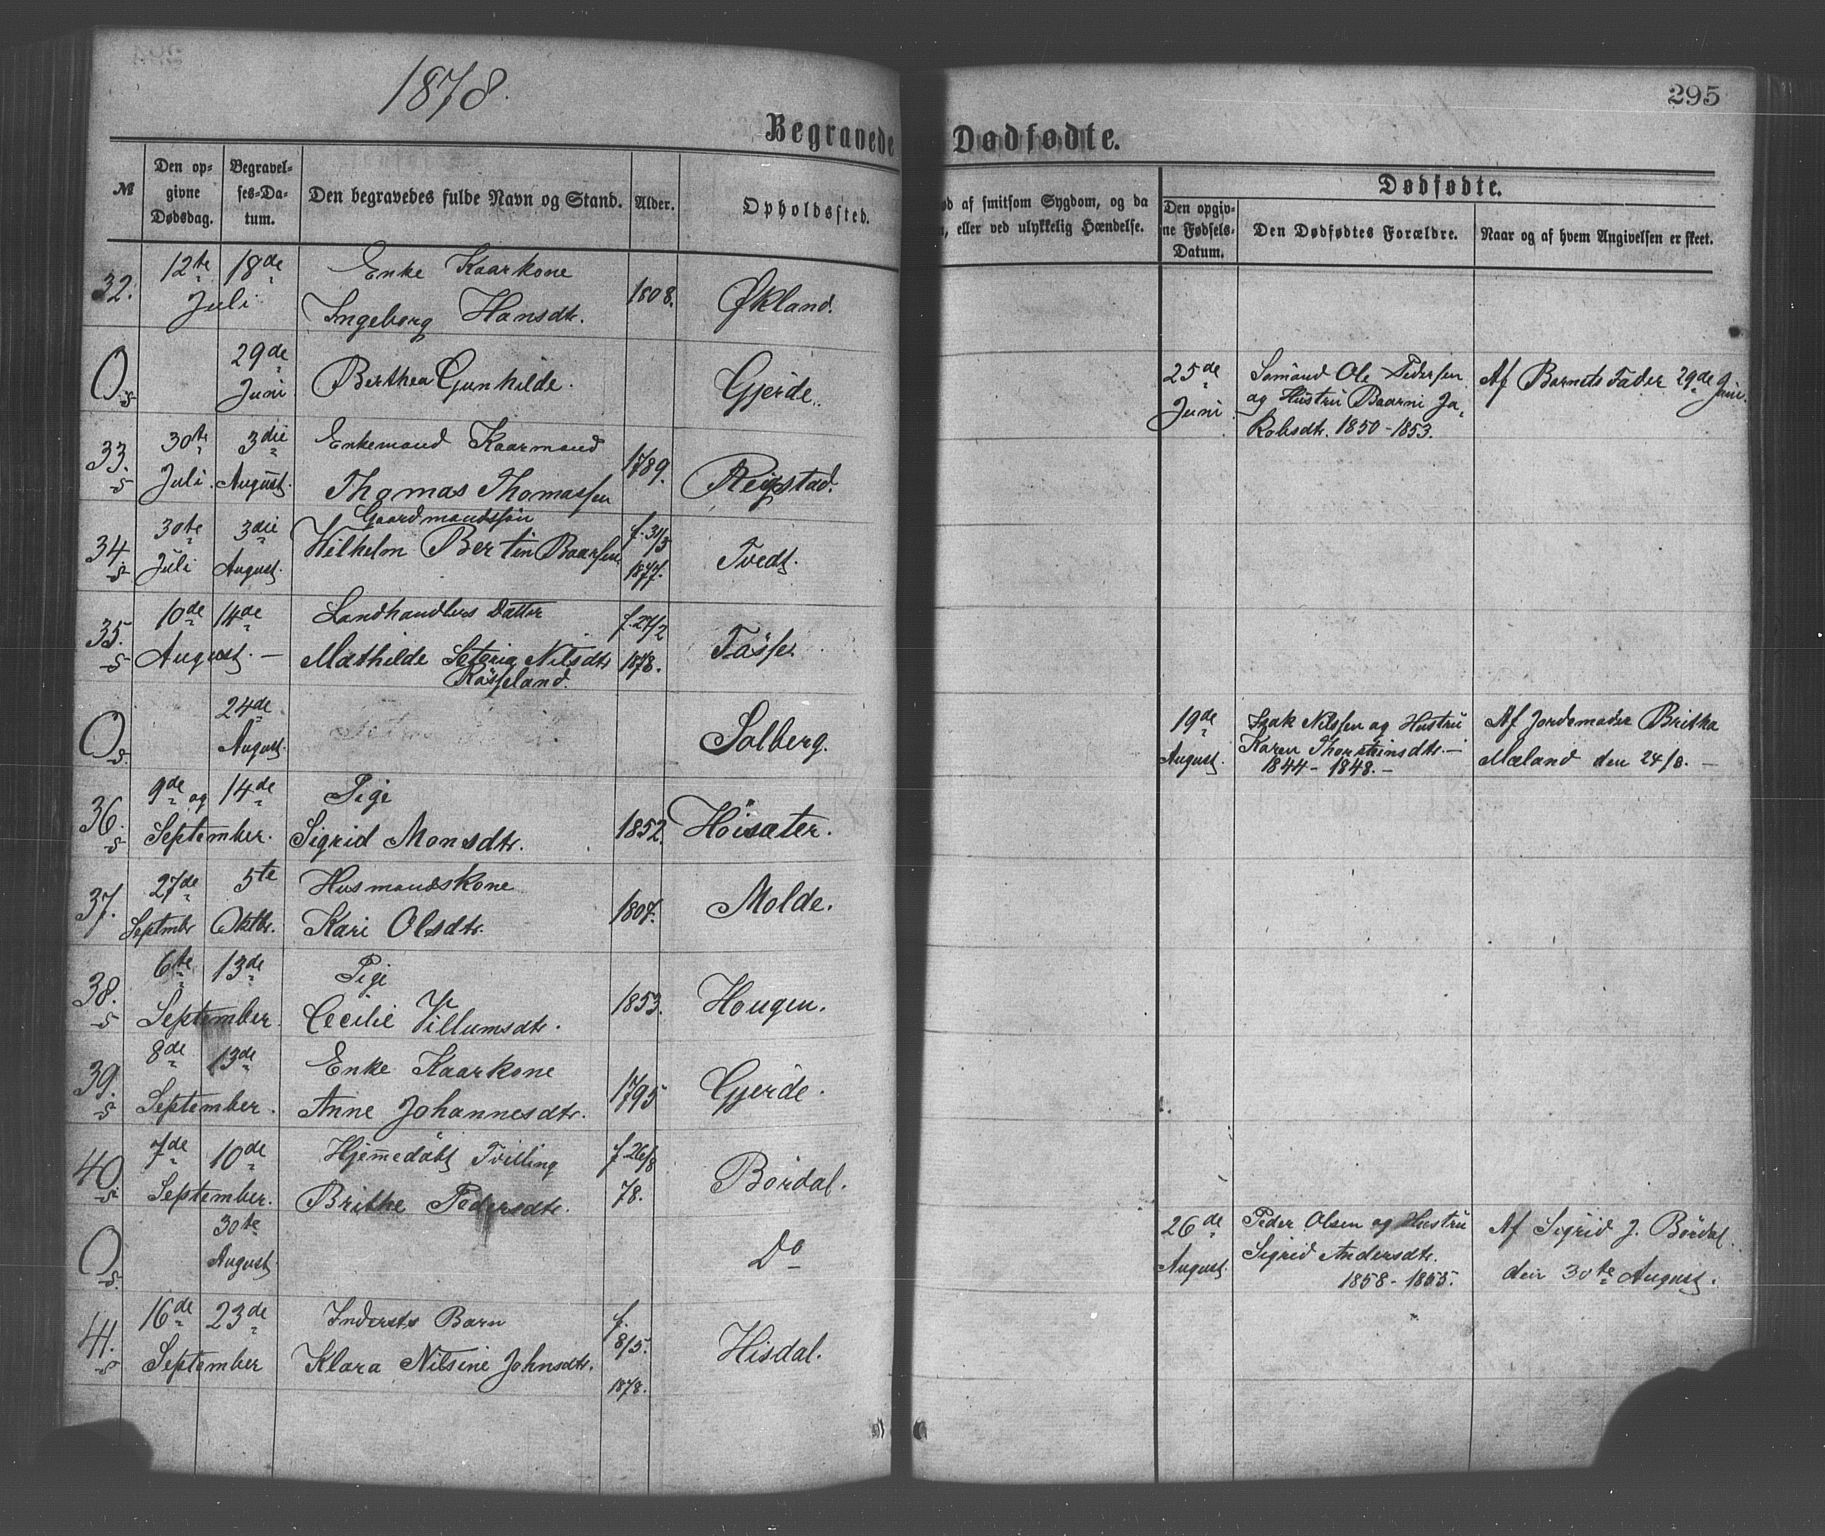 1878.
295
Begravede
Dødfødte.
M
Den op-
givne
Dødsdag.
Begravel-
ses-Da-
tum.
Den begravedes fulde Navn og Stand.
Alder.
Opholdssted.
ød af smitsom Sygdom, og da
, eller ved ulykkelig Hændelse.
Dødfødte.
Den opgiv-
ne Fødsels-
Datum.
Den Dødfødtes Forældre.
Naar og af hvem Angivelsen er skeet.
32.
12te
Juli
18de
Enke Kaarkone
Ingeborg Hansdtr.
1808.
Økland.
O
s
29de
Juni
Berthea Gunhilde.
Gjerde.
25de
Juni
Sømand Ole Pedersen
og Hustru Baarni Ja-
kobsdtr. 1850-1853.
Af Barnets Fader 29de Juni.
33.
s
30te
Juli.
3die
August.
Enkemand Kaarmand
Thomas Thomassen
1789.
Reigstad.
34.
s
30te
Juli
3die
August.
Gaardmandssøn
Wilhelm Bertin Baarsen
f. 31/5
1877.
Tvedt.
35.
s
10de
August. -
14de
Landhandlers Datter
Mathilde Nilsdtr
Røsseland.
f. 27/2
1878.
Tøsse.
O
s.
24de
August.
Solberg.
19de
August.
Isak Nilssen og Hustru
Karen Thorsteinsdtr. -
1844 - 1848. -
Af Jordemoder Britha
Mæland den 24/8. -
36.
s
9de og 14de
September.
Pige
Sigrid Monsdtr.
1852.
Høisæter.
37.
27de
Septmbr
5te
Oktbr.
Husmandskone
Kari Olsdtr.
1807.
Molde.
38.
s
6te
September.
13de
Pige
Cecilie Villumsdtr.
1853.
Hougen.
39.
s
8de
September.
13de
Enke Kaarkone
Anne Johannesdtr.
1795
Gjerde.
40
s
7de
September.
10de
Hjemmedøbt Tvilling
Brithe Pedersdtr.
f 26/8
78.
Børdal.
O
s.
30te
August.
Do
26de
August.
Peder Olsen og Hustru
Sigrid Andersdtr.
1858-1855.
Af Sigrid J. Børdal.
den 30te August.
41.
s
16de
September
23de
Indersts Barn
Klara Nilsine Johnsdtr.
f.
8/5.
1878.
Hisdal.